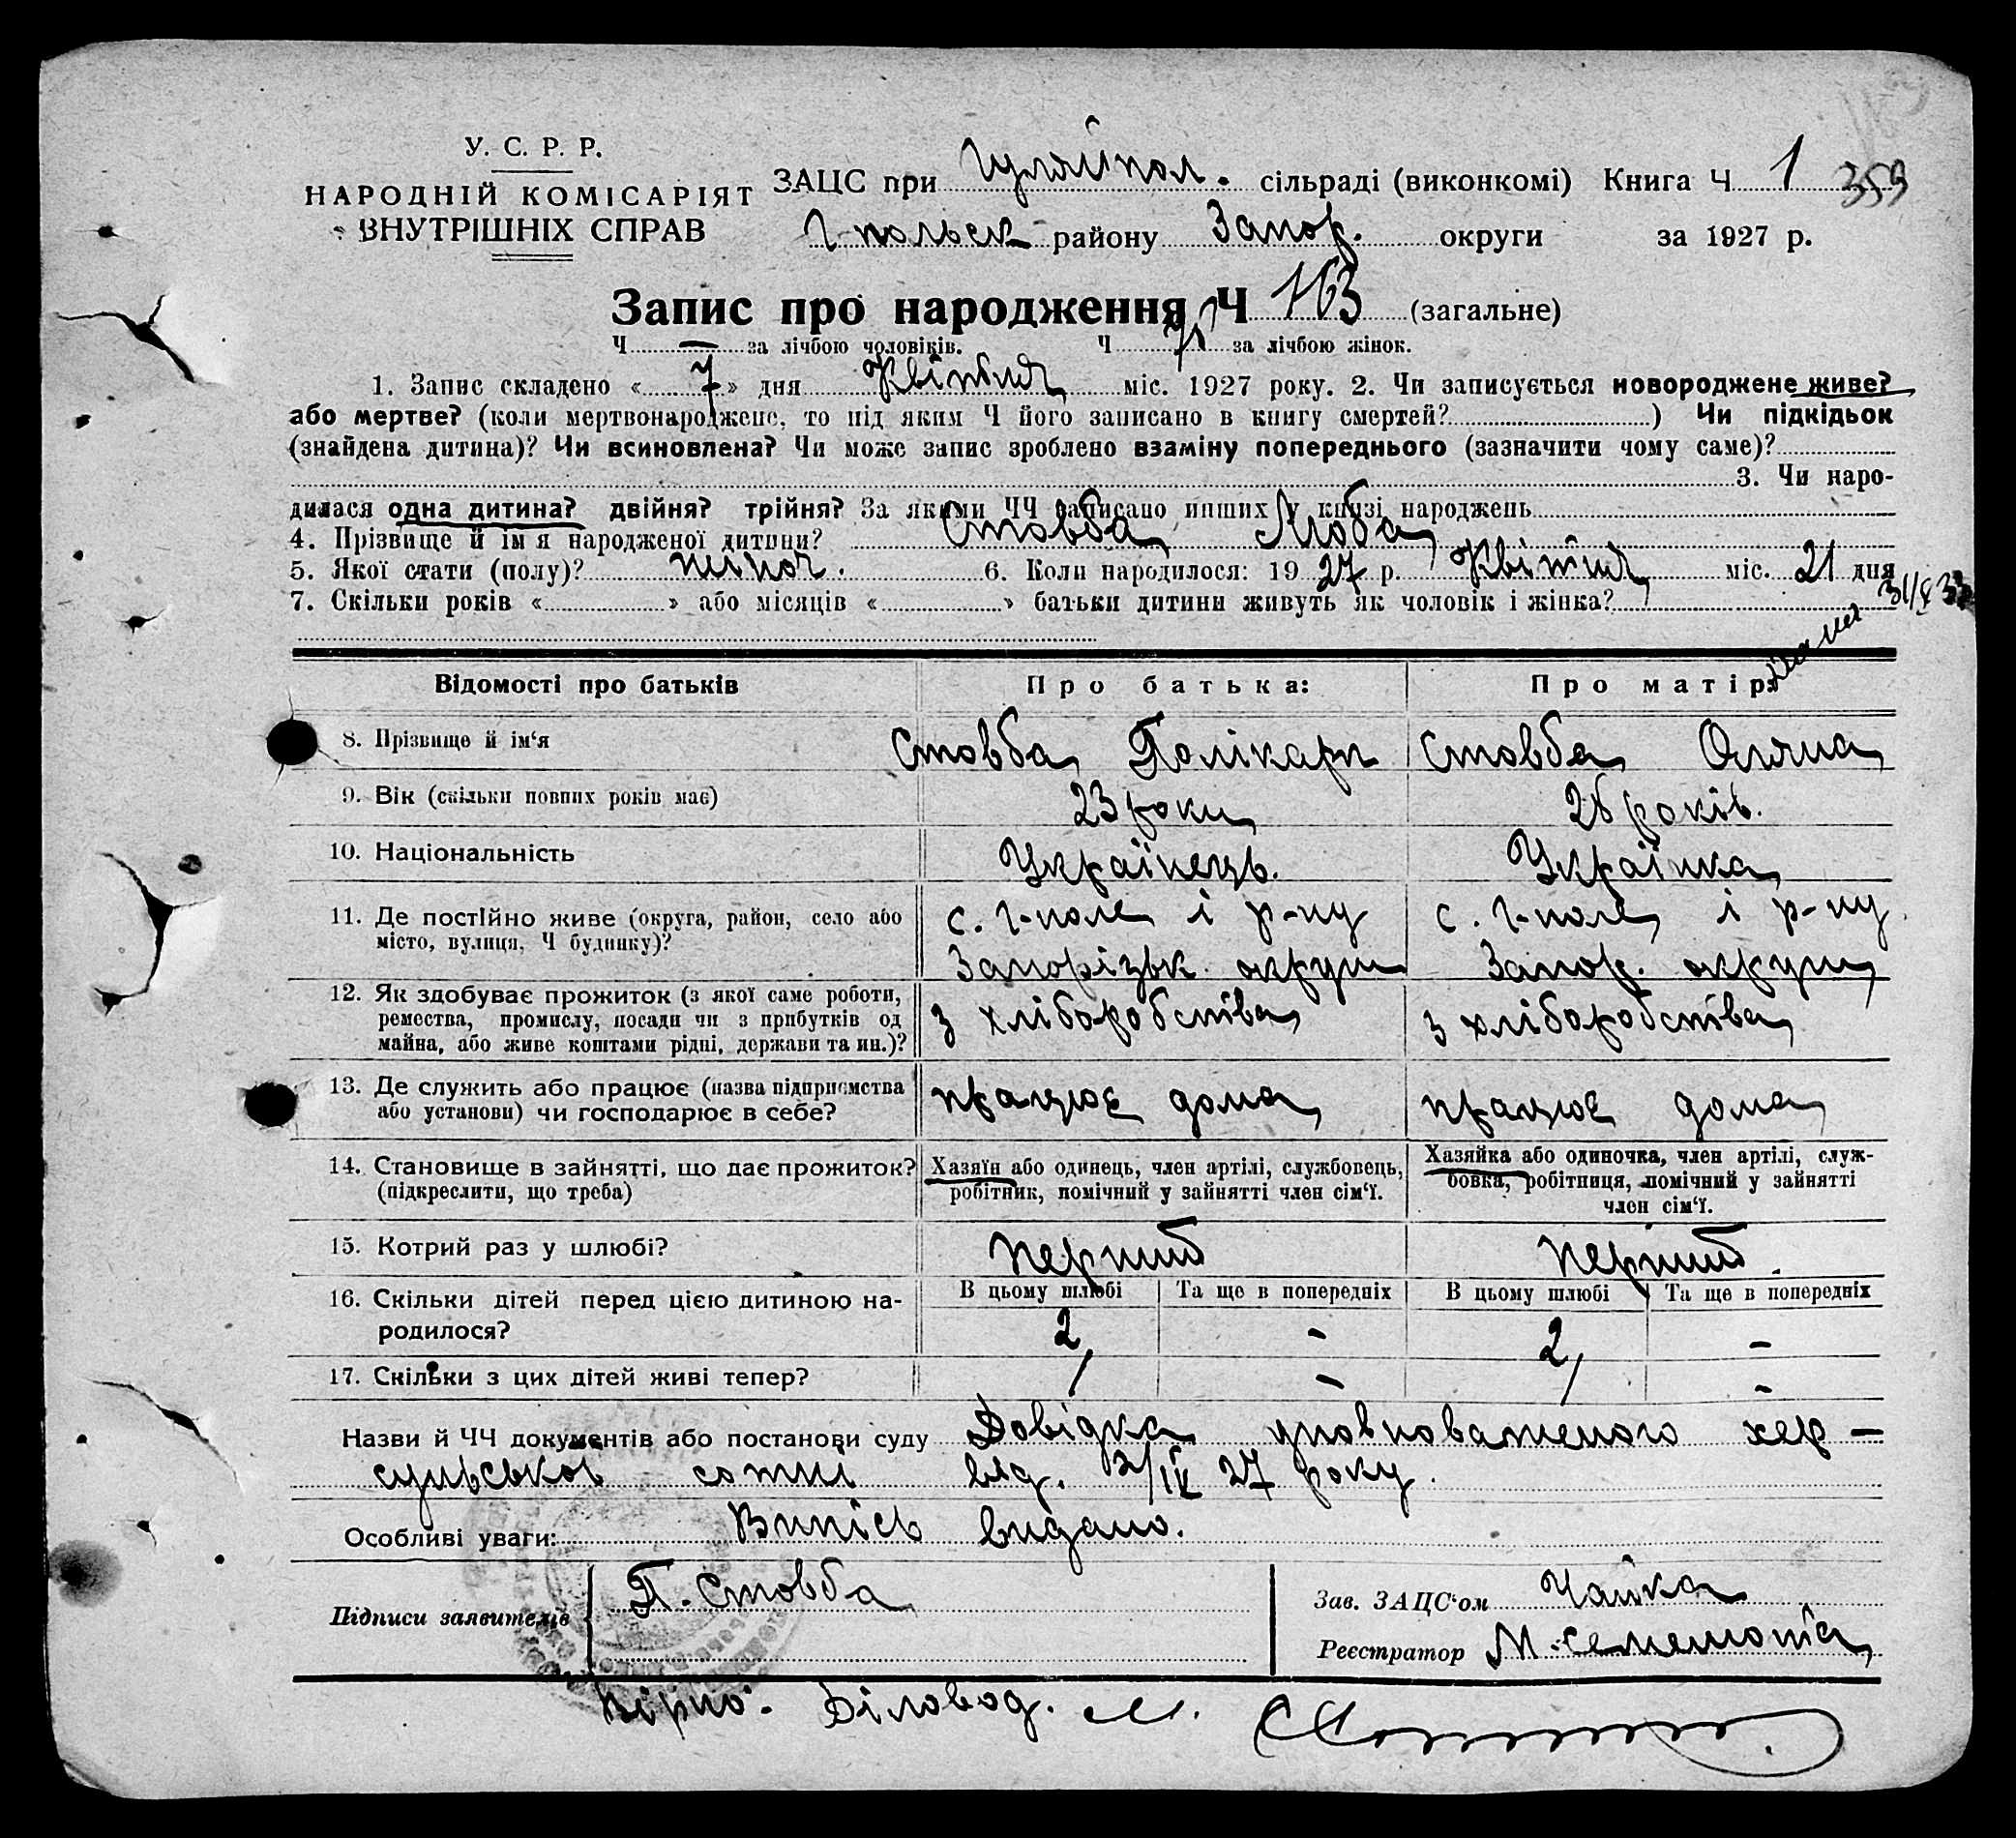 У. С. Р. Р.
НАРОДНІЙ КОМІСАРІЯТ
ВНУТРІШНІХ СПРАВ
ЗАЦС при Гуляйпол. сільраді (виконкомі) Книга Ч 1 359
Г-польськ району Запор. округи за 1927 р.
Запис про народження Ч 163 (загальне)
Ч — за лічбою чоловіків. Ч за лічбою жінок.
1. Запис складено « 7 » дня Квітня міс. 1927 року. 2. Чи записується новороджене живе?
або мертве? (коли мертвонароджене, то під яким Ч його записано в книгу смертей? ) Чи підкідьок
(знайдена дитина)? Чи всиновлена? Чи може запис зроблено взаміну попереднього (зазначити чому саме)?
3. Чи наро-
дилася одна дитина? двійня? трійня? За якими ЧЧ записано инших у книзі народжень
4. Прізвище й ім'я народженої дитини? Стовба Люба
5. Якої стати (полу)? жіноч. 6. Коли народилося: 19 27 р. Квітня міс. 21 дня
7. Скільки років « » або місяців « » батьки дитини живуть як чоловік і жінка?
Відомості про батьків Про батька: Про матір:
8. Прізвище й ім'я Стовба Полікарп Стовба Оляна
9. Вік (скільки повних років має) 23 роки 26 років.
10. Національність Українець. Українка
11. Де постійно живе (округа, район, село або с. Г-поле і р-ну с. Г-поле і р-ну
місто, вулиця, Ч будинку)? Запорізьк. округи Запор. округи
12. Як здобуває прожиток (з якої саме роботи, з хліборобства з хліборобства
ремества, промислу, посади чи з прибутків од
майна, або живе коштами рідні, держави та ин.)?
13. Де служить або працює (назва підприємства працює дома працює дома
або установи) чи господарює в себе?
14. Становище в зайнятті, що дає прожиток? Хазяїн або одинець, член артілі, службовець, Хазяйка або одиночка, член артілі, служ-
(підкреслити, що треба) робітник, помічний у зайнятті член сім'ї. бовка, робітниця, помічний у зайнятті
член сім'ї.
15. Котрий раз у шлюбі? перший перший.
16. Скільки дітей перед цією дитиною на- В цьому шлюбі Та ще в попередніх В цьому шлюбі Та ще в попередніх
родилося? 2 - 2 -
17. Скільки з цих дітей живі тепер? - -
Назви й ЧЧ документів або постанови суду Довідка уповноваженого хер-
сунської сотні від. 2/IV 27 року.
Особливі уваги: Випісь видано.
Підписи заявителів П. Стовба Зав. ЗАЦС'ом Чайка
Реєстратор М.
Вірно: Діловод. М.